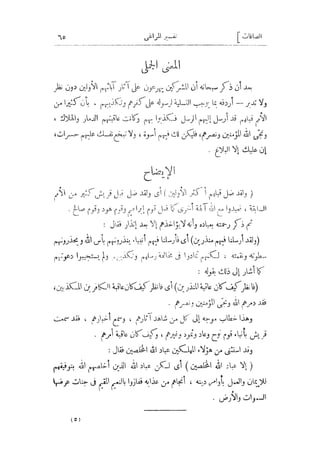 الصافات ]
تفسير المراغى
٦٥
المعنى الجملى
بعد أن ذكر سبحانه أن المشركين يهرعون على آثار آبائهم الأولين دون نظر
ولا تدبر — أردفه بما يوجب التسلية لرسوله على كفرهم وتكذيبهم ، بأن كثيرا من
الأمم قبلهم قد أرسل إليهم الرسل فكذبوا بهم وكانت عاقبتهم الدمار والهلاك ،
ونجى الله المؤمنين ونصرهم، فليكن لك فيهم أسوة ، ولا تبخع نفسك عليهم حسرات،
إن عليك إلا البلاغ .
الإيضاح
( ولقد ضل قبلهم أكثر الأولين ) أى ولقد ضل قبل قريش كثير من الأمم
السابقة ، فعبدوا مع الله آلهة أخرى كما فعل قوم إبراهيم وقوم هود وقوم صالح .
ثم ذكر رحمته بعباده وأنه لا يؤاخذهم إلا بعد إنذار فقال :
(ولقد أرسلنا فيهم منذرين) أى فأرسلنا فيهم أنبياء، ينذرونهم بأس الله ويحذرونهم
سطوته ونقمته ، لكنهم تمادوا فى مخالفة رسلهم وتكذيبهم ولم يستجيبوا دعوتهم
كما أشار إلى ذلك بقوله :
(فانظر كيف كان عاقبة المنذرين) أى فانظر كيف كان عاقبة الكافرين المكذبين،
فقد دمرهم الله ونجى المؤمنين ونصرهم .
وهذا خطاب موجه إلى كل من شاهد آثارهم ، وسمع أخبارهم ، فقد سمعت
قريش بأنباء قوم نوح وعاد وثمود وغيرهم ، وكيف كان عاقبة أمرهم .
وقد استثنى من هؤلاء المهلكين عباد الله المخلصين فقال :
( إلا عباد الله المخلصين ) أى لكن عباد الله الذين أخلصهم الله بتوفيقهم
للإيمان والعمل بأوامر دينه ، أنجاهم من عذابه ففازوا بالنعيم المقيم فى جنات عرضها
السموات والأرض .
( ٥ )